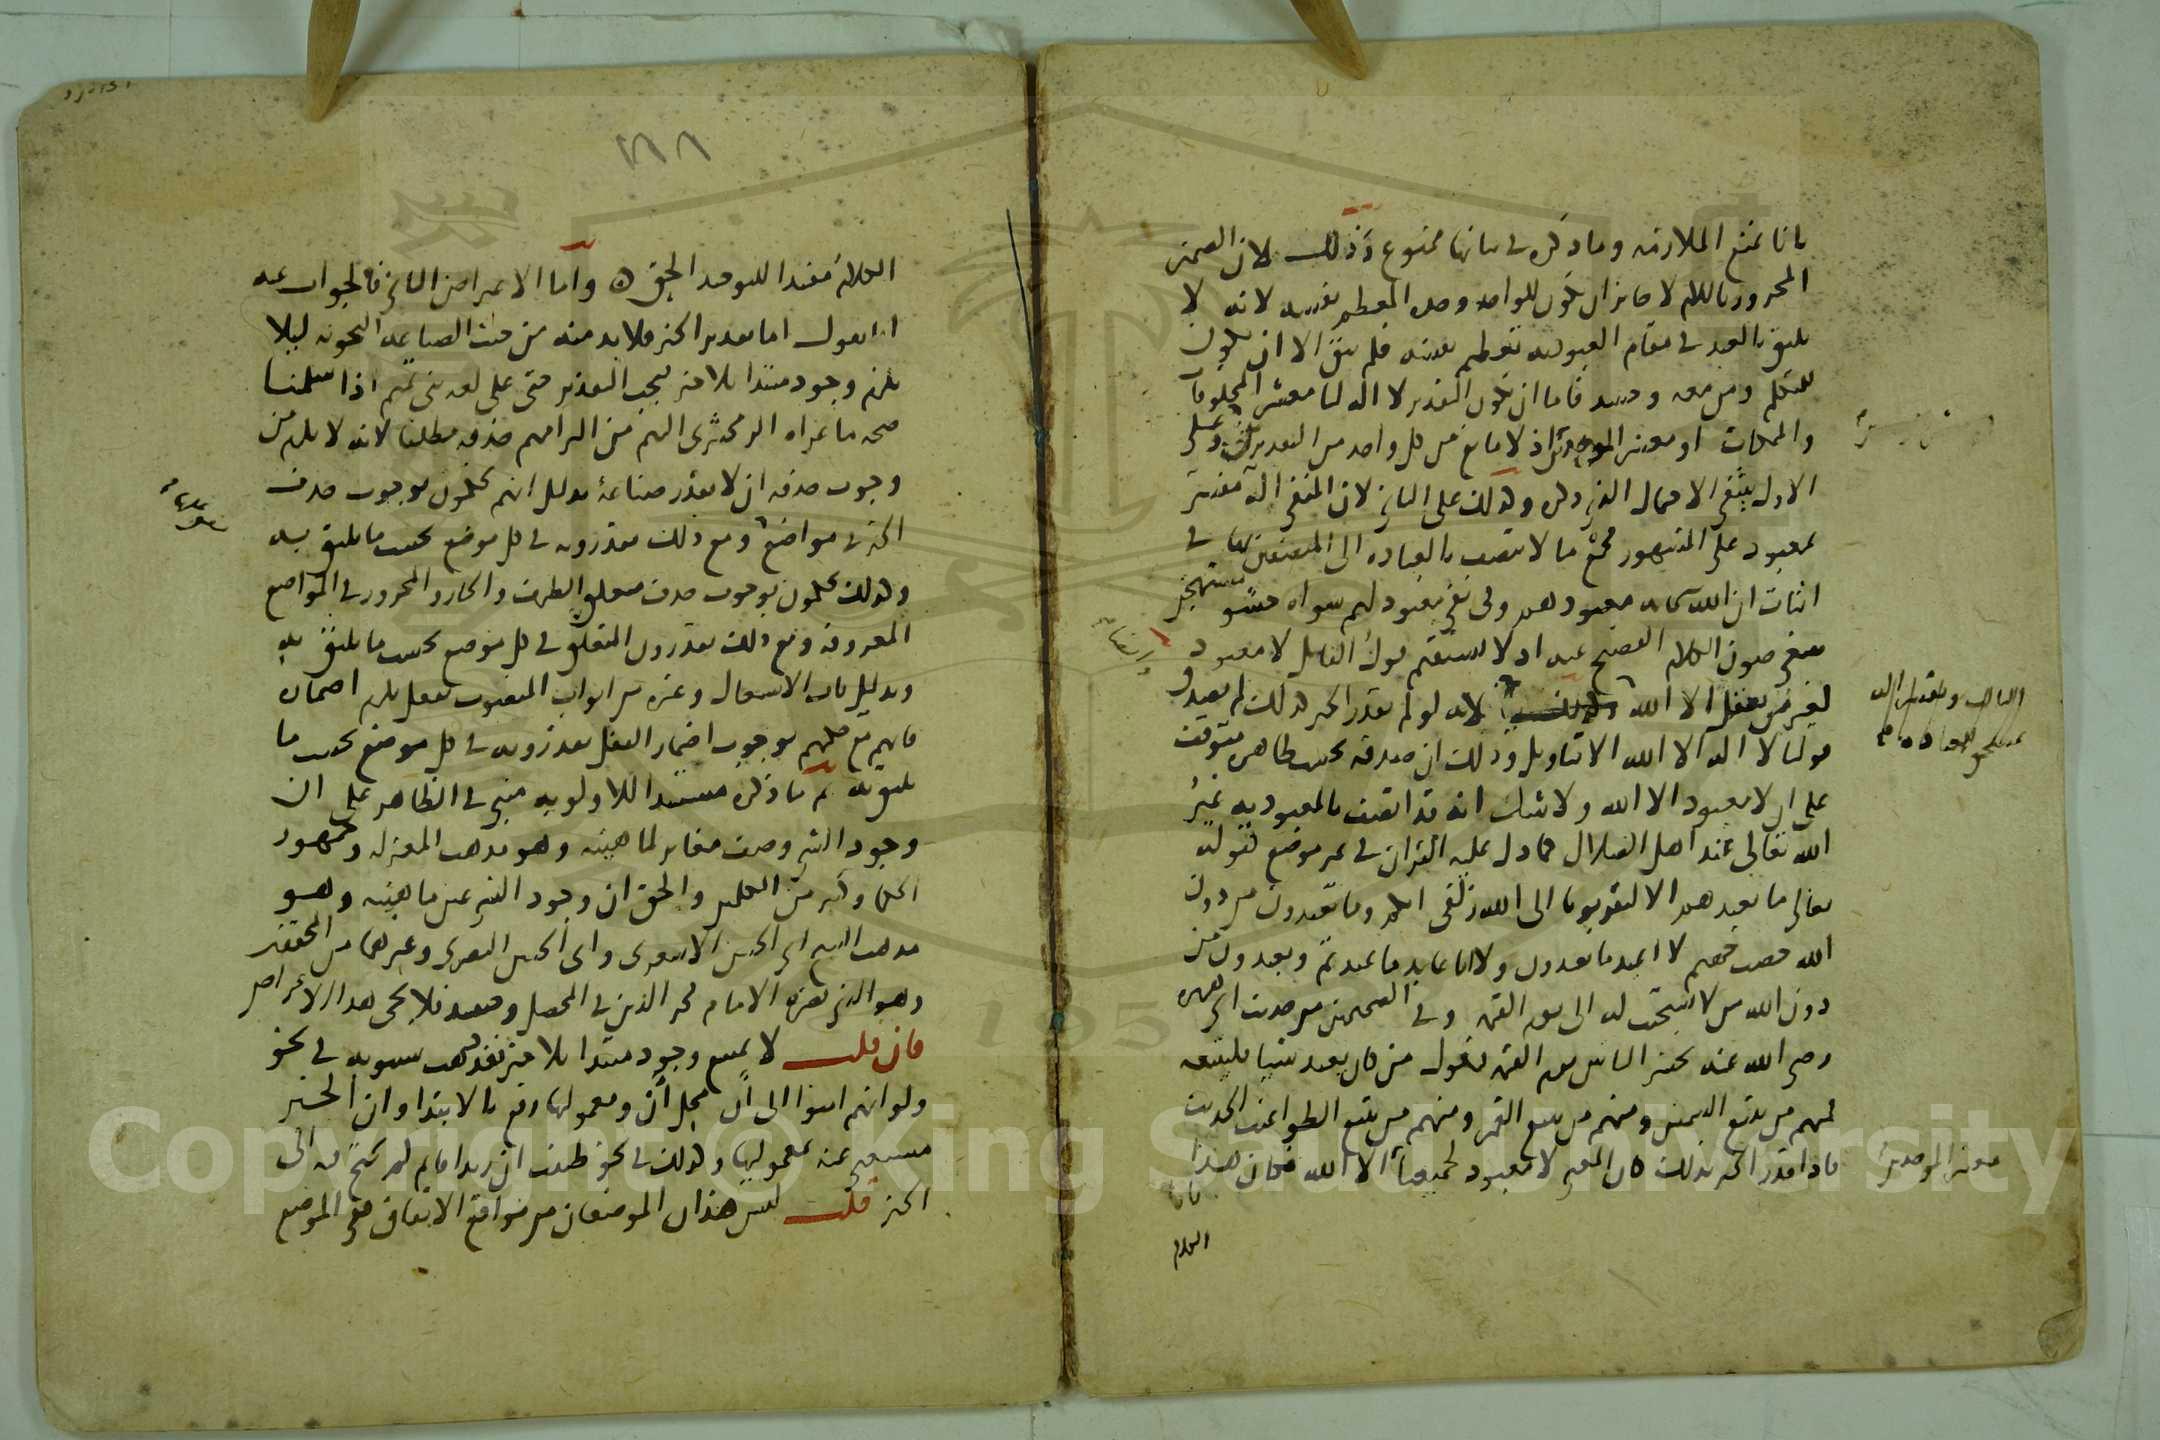 بانا نمنع الملازمة وما ذكره في بيانها ممنوع وذلك لان الضمير
المجرور باللام لا جايز ان يكون للواحد وحده المعظم نفسه لانه لا
يليق بالعبد في مقام العبودية تعظيم نفسه فلم يبق الا ان يكون
للمتكلم ومن معه وحينئذ فاما ان يكون التقدير لا اله لنا معشر المخلوقات
والممكنات او معشر الموحدين اذ لا مانع من كل واحد من التقديرين وعلى
الاول ينتفي الاحتمال الذي ذكره وكذلك على الثاني لان المنفي اله مفسر
بمعبود على المشهور فمع ما لا يتصف بالعبادة الى المتصفين بها في
اثبات ان الله سبحانه معبودهم وفي نفي معبود لهم سواه حشو مستهجن
ينبغي صون الكلام الفصيح عنه اذ لا يستقيم قول القايل لا معبود
لغير من يعقل الا الله لانه لو لم يقدر الخبر كذلك لم يصدق
قولنا لا اله الا الله الا بتاويل وذلك ان صدقه بحسب ظاهره متوقف
على ان لا معبود الا الله ولا شك انه قد اتصف بالمعبودية غير
الله تعالى عند اهل الضلال كما دل عليه القران في غير موضع كقوله
تعالى ما نعبدهم الا ليقربونا الى الله زلفى انكم وما تعبدون من دون
الله حصب جهنم لا اعبد ما تعبدون ولا انا عابد ما عبدتم ويعبدون من
دون الله من لا يستجيب له الى يوم القيمة وفي الصحيحين من حديث ابي هريرة
رضي الله عنه يحشر الناس يوم القيمة فيقول من كان يعبد شيئا فليتبعه
فمنهم من يتبع الشمس ومنهم من يتبع القمر ومنهم من يتبع الطواغيت الحديث
فاذا قدر الخبر كذلك كان المعنى لا معبود لجميعنا الا الله فكان هذا
معشر الموحدين
الكلام
١٨٨
الكلام مفيدا للتوحيد الحق ه واما الاعتراض الثاني فالجواب عنه
انا نقول اما تقدير الخبر فلا بد منه من حيث الصناعة النحوية ليلا
يلزم وجود مبتدا بلا خبر فيجب التقدير حتى على لغة بني تميم اذا سلمنا
صحة ما عزاه الزمخشري اليهم من التزامهم حذفه مطلقا لانه لا يلزم من
وجوب حذفه ان لا يقدر صناعة بدليل انهم يحكمون بوجوب حذف
الخبر في مواضع ومع ذلك يقدرونه في كل موضع بحسب ما يليق به
وكذلك يحكمون بوجوب حذف متعلق الظرف والجار والمجرور في المواضع
المعروفة ومع ذلك يقدرون المتعلق في كل موضع بحسب ما يليق به
وبدليل باب الاشتغال وغيره من ابواب المنصوب بفعل يلزم اضماره
فانهم مع حكمهم بوجوب اضمار الفعل يقدرونه في كل موضع بحسب ما
يليق به ثم ما ذكره مستندا للاولوية مبني في الظاهر على ان
وجود الشي وصف مغاير لماهيته وهو مذهب المعتزلة وجمهور
الحكما وكثير من المتكلمين والحق ان وجود الشي عين ماهيته وهو
مذهب الشيخ ابي الحسن الاشعري وابي الحسين البصري وغيرهما من المحققين
وهو الذي نصره الامام فخر الدين في المحصل وحينئذ فلا يجي هذا الاعتراض
فان قلت لا يمتنع وجود مبتدا بلا خبر فقد ذهب سيبويه في نحو
ولو انهم امنوا الى ان محل ان ومعمولها رفع بالابتدا وان الخبر
مستغنى عنه بمعموليها وكذلك في نحو ظننت ان زيدا قايم لم يحتج فيه الى
الخبر قلت ليس هذان الموضعان من مواقع الاتفاق ففي الموضع